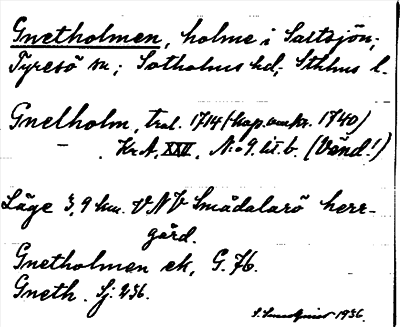 Gnetholmen, holme i Saltsjön,
Tyresö sn; Sotholms hd; Sthlms l.
Gnelholm, tral. 1714 (kop. omkr. 1740)
— . Kr.A. XXVI. N:o 9. lit. b. (Vänd!)
Läge 3,9 km. VNV Smådalarö herr-
gård.
Gnetholmen ek. G. 76.
Gneth. Sj. 236.
1936.